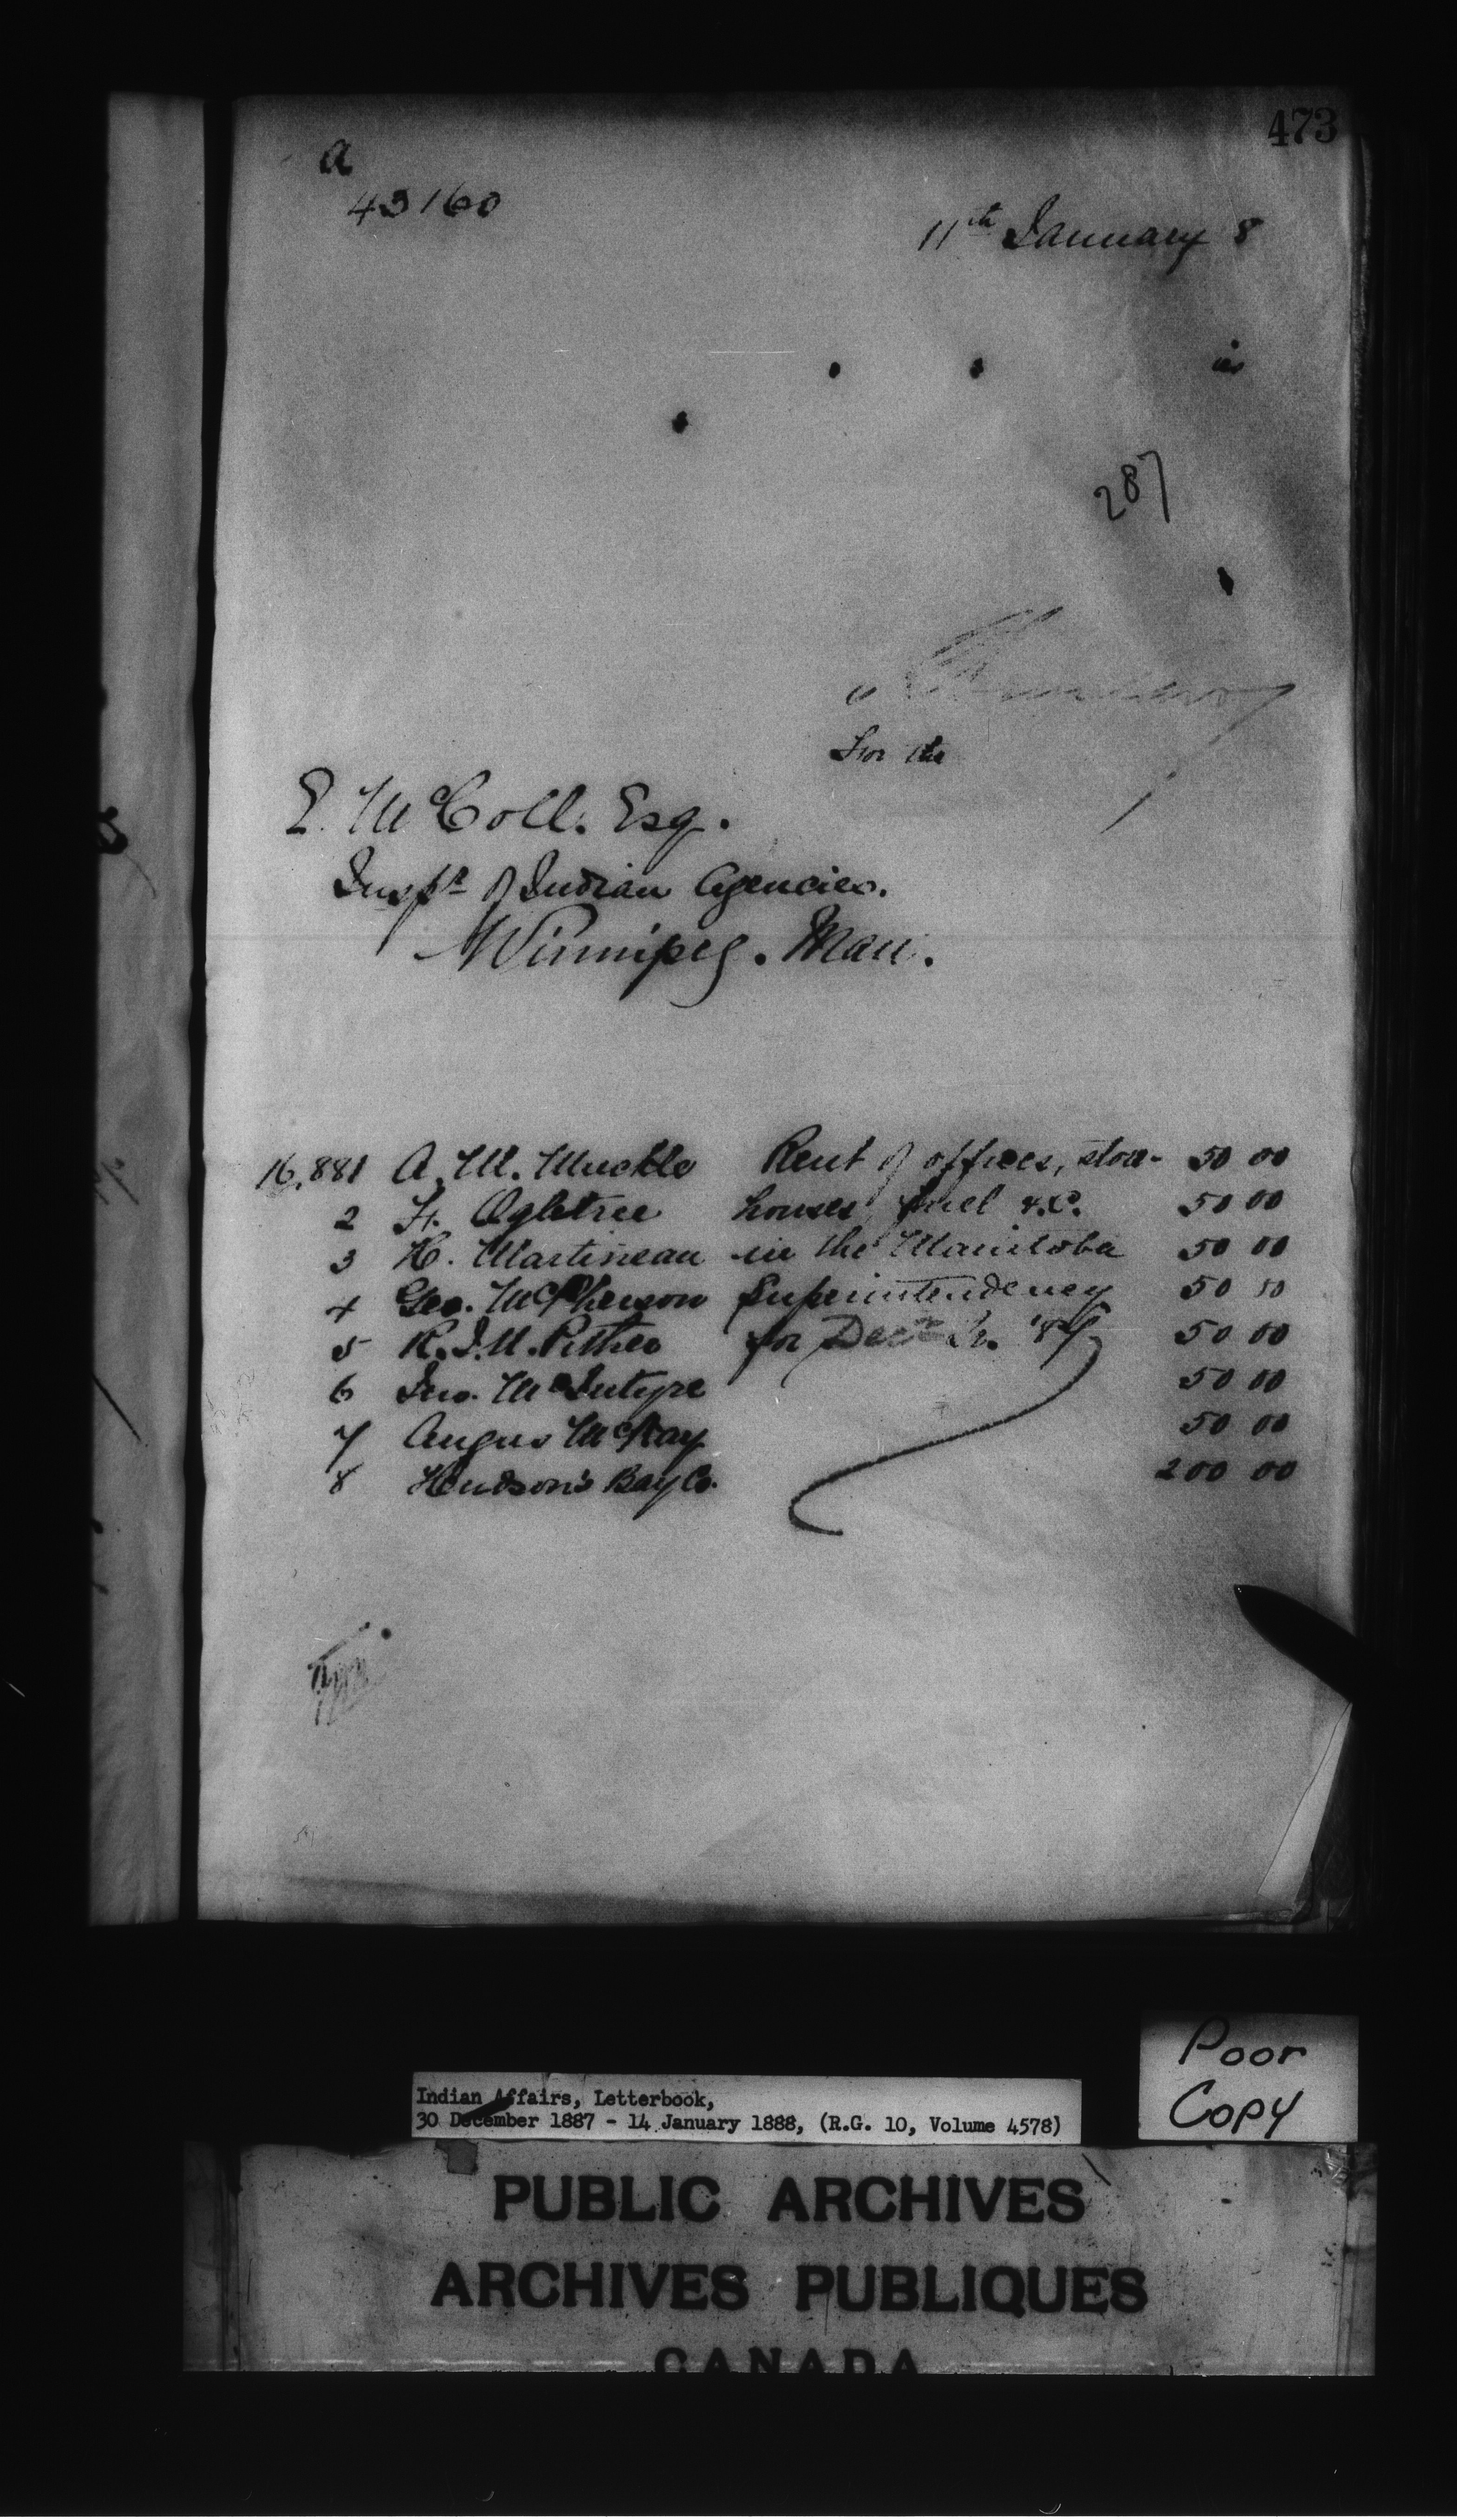 473
a
43160
11th January 8
is
287
For the
E. McColl. Esq.
Inspr of Indian Agencies.
Winnipeg. Man.
16,881 A. M. Muckle Rent of offices, store- 50 00
2 F. Ogletree houses, fuel &c. 50 00
3 H. Martineau in the Manitoba 50 00
4 Geo. McPherson Superintendency 50 00
5 R. J. N. Pither for Decr Qr. '87 50 00
6 Jno. McIntyre 50 00
7 Angus McKay 50 00
8 Hudson's Bay Co. 200 00
Poor
Copy
Indian Affairs, Letterbook,
30 December 1887 - 14 January 1888, (R.G. 10, Volume 4578)
PUBLIC ARCHIVES
ARCHIVES PUBLIQUES
CANADA